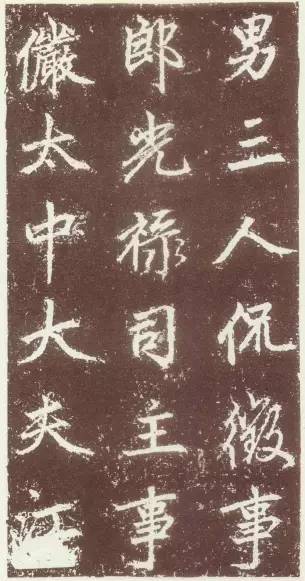 男三人侃徵事
郎光禄司主事
儼太中大夫江